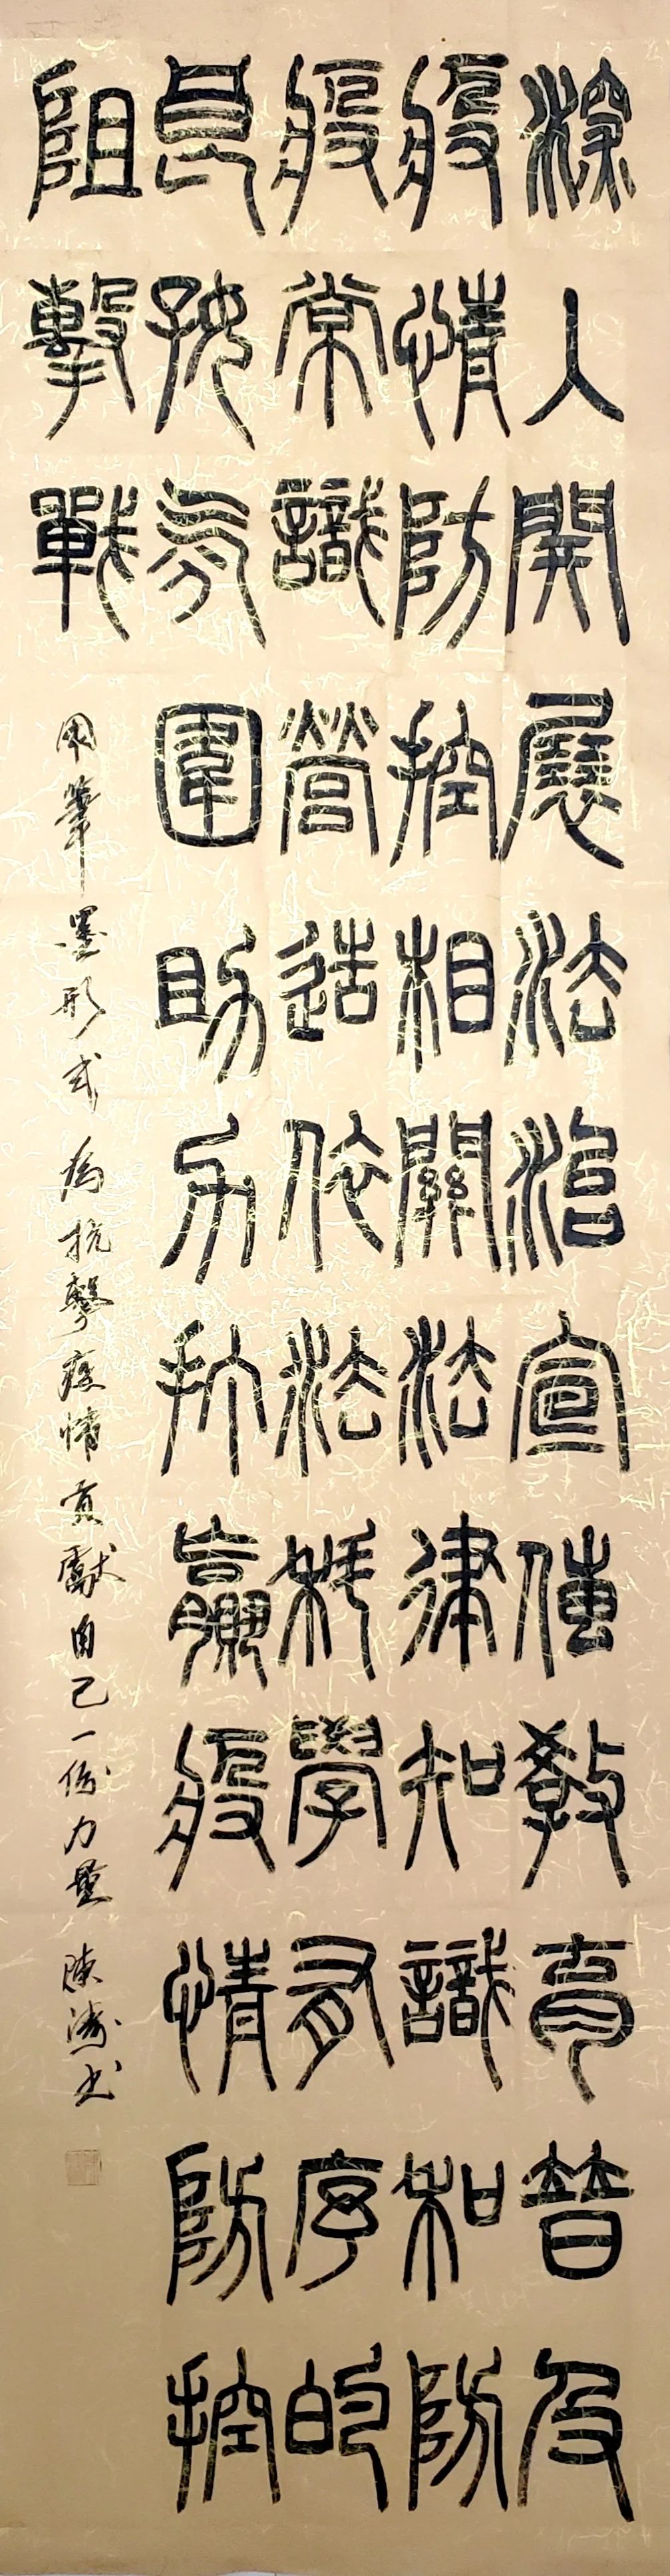 深入開展法治宣傳教育普及
疫情防控相關法律知識和防
疫常識營造依法科學有序的
良好氛圍助力打贏疫情防控
阻擊戰
用筆墨形式為抗擊疫情貢獻自己一份力量 陳濤书